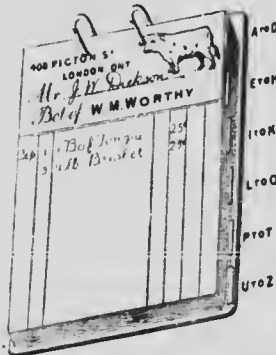 408 PICTON ST
LONDON ONT
Mr J. W. Dickson
Bot of W M. WORTHY
Sep 25¢
3 lb Brisket 25¢
A TO D
E TO H
I TO K
L TO O
P TO T
U TO Z